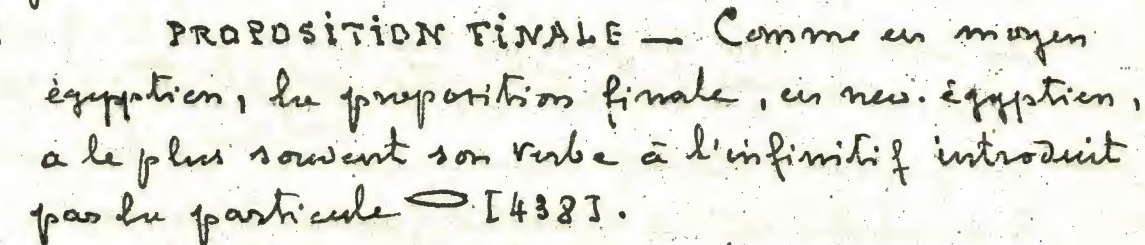 PROPOSITION FINALE — Comme en moyen
égyptien, la proposition finale, en néo-égyptien,
a le plus souvent son verbe à l'infinitif introduit
par la particule 𓂋 [438].